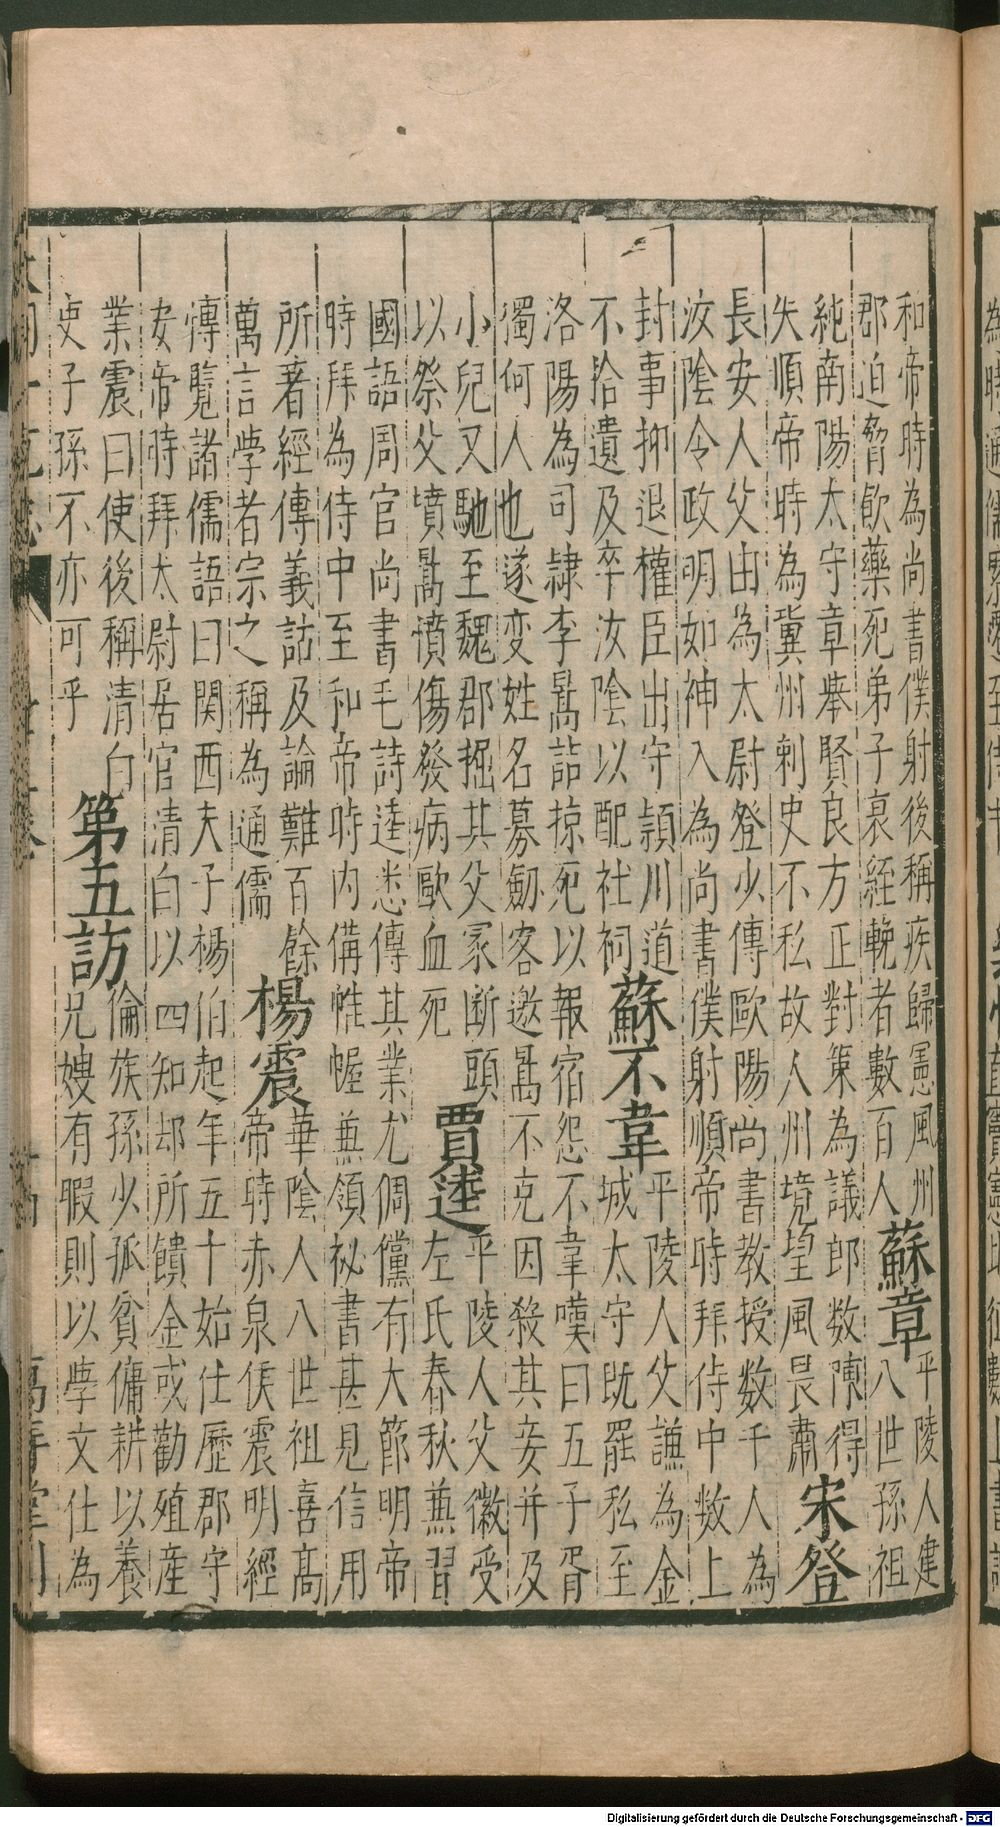 和帝時為尚書僕射後稱疾歸憲風州
郡迫脅飲藥死弟子哀絰輓者數百人
蘇章
平陵人建
八世孫祖
純南陽太守章舉賢良方正對策為議郎数陳得
失順帝時為冀州刺史不私故人州境望風畏肅
宋登
長安人父由為太尉登少傳歐陽尚書教授数千人為
汝陰令政明如神入為尚書僕射順帝時拜侍中数上
封事抑退權臣出守潁川道
不拾遺及卒汝陰以配社祠
蘇不韋
平陵人父謙為金
城太守既罷私至
洛陽為司隷李暠詰掠死以報宿怨不韋嘆曰五子胥
獨何人也遂变姓名募劒客邀暠不克因殺其妾并及
小兒又馳至魏郡掘其父冢断頭
以祭父墳暠憤傷發病歐血死
賈逵
平陵人父徽受
左氏春秋兼習
國語周官尚書毛詩逵悉傳其業尤倜儻有大節明帝
時拜為侍中至和帝時内俻帷幄兼領祕書甚見信用
所著經傳義詁及論難百餘
萬言學者宗之稱為通儒
楊震
華陰人八世祖喜高
帝時赤泉侯震明經
愽覽諸儒語曰関西夫子楊伯起年五十始仕歷郡守
安帝時拜太尉居官清白以四知却所饋金或勸殖產
業震曰使後稱清白
吏子孫不亦可乎
第五訪
倫族孫少孤貧傭耕以養
兄嫂有暇則以學文仕為
萬壽堂刊
Digitalisierung gefördert durch die Deutsche Forschungsgemeinschaft - DFG